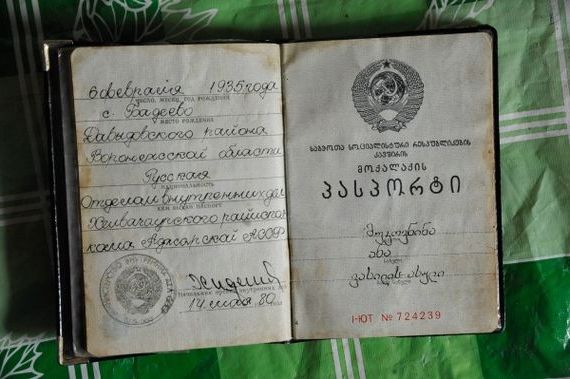 6 февраля 1935 года
число, месяц, год рождения
с. Бадеево
место рождения
Давыдовского района
Воронежской области
Русская
национальность
Отделом внутренних дел
кем выдан паспорт
Хелвачаурского райиспол-
кома Аджарской АССР
14 мая 80
საბჭოთა სოციალისტური რესპუბლიკების
კავშირის
მოქალაქის
პასპორტი
ანა
სახელი
I-ЮТ № 724239